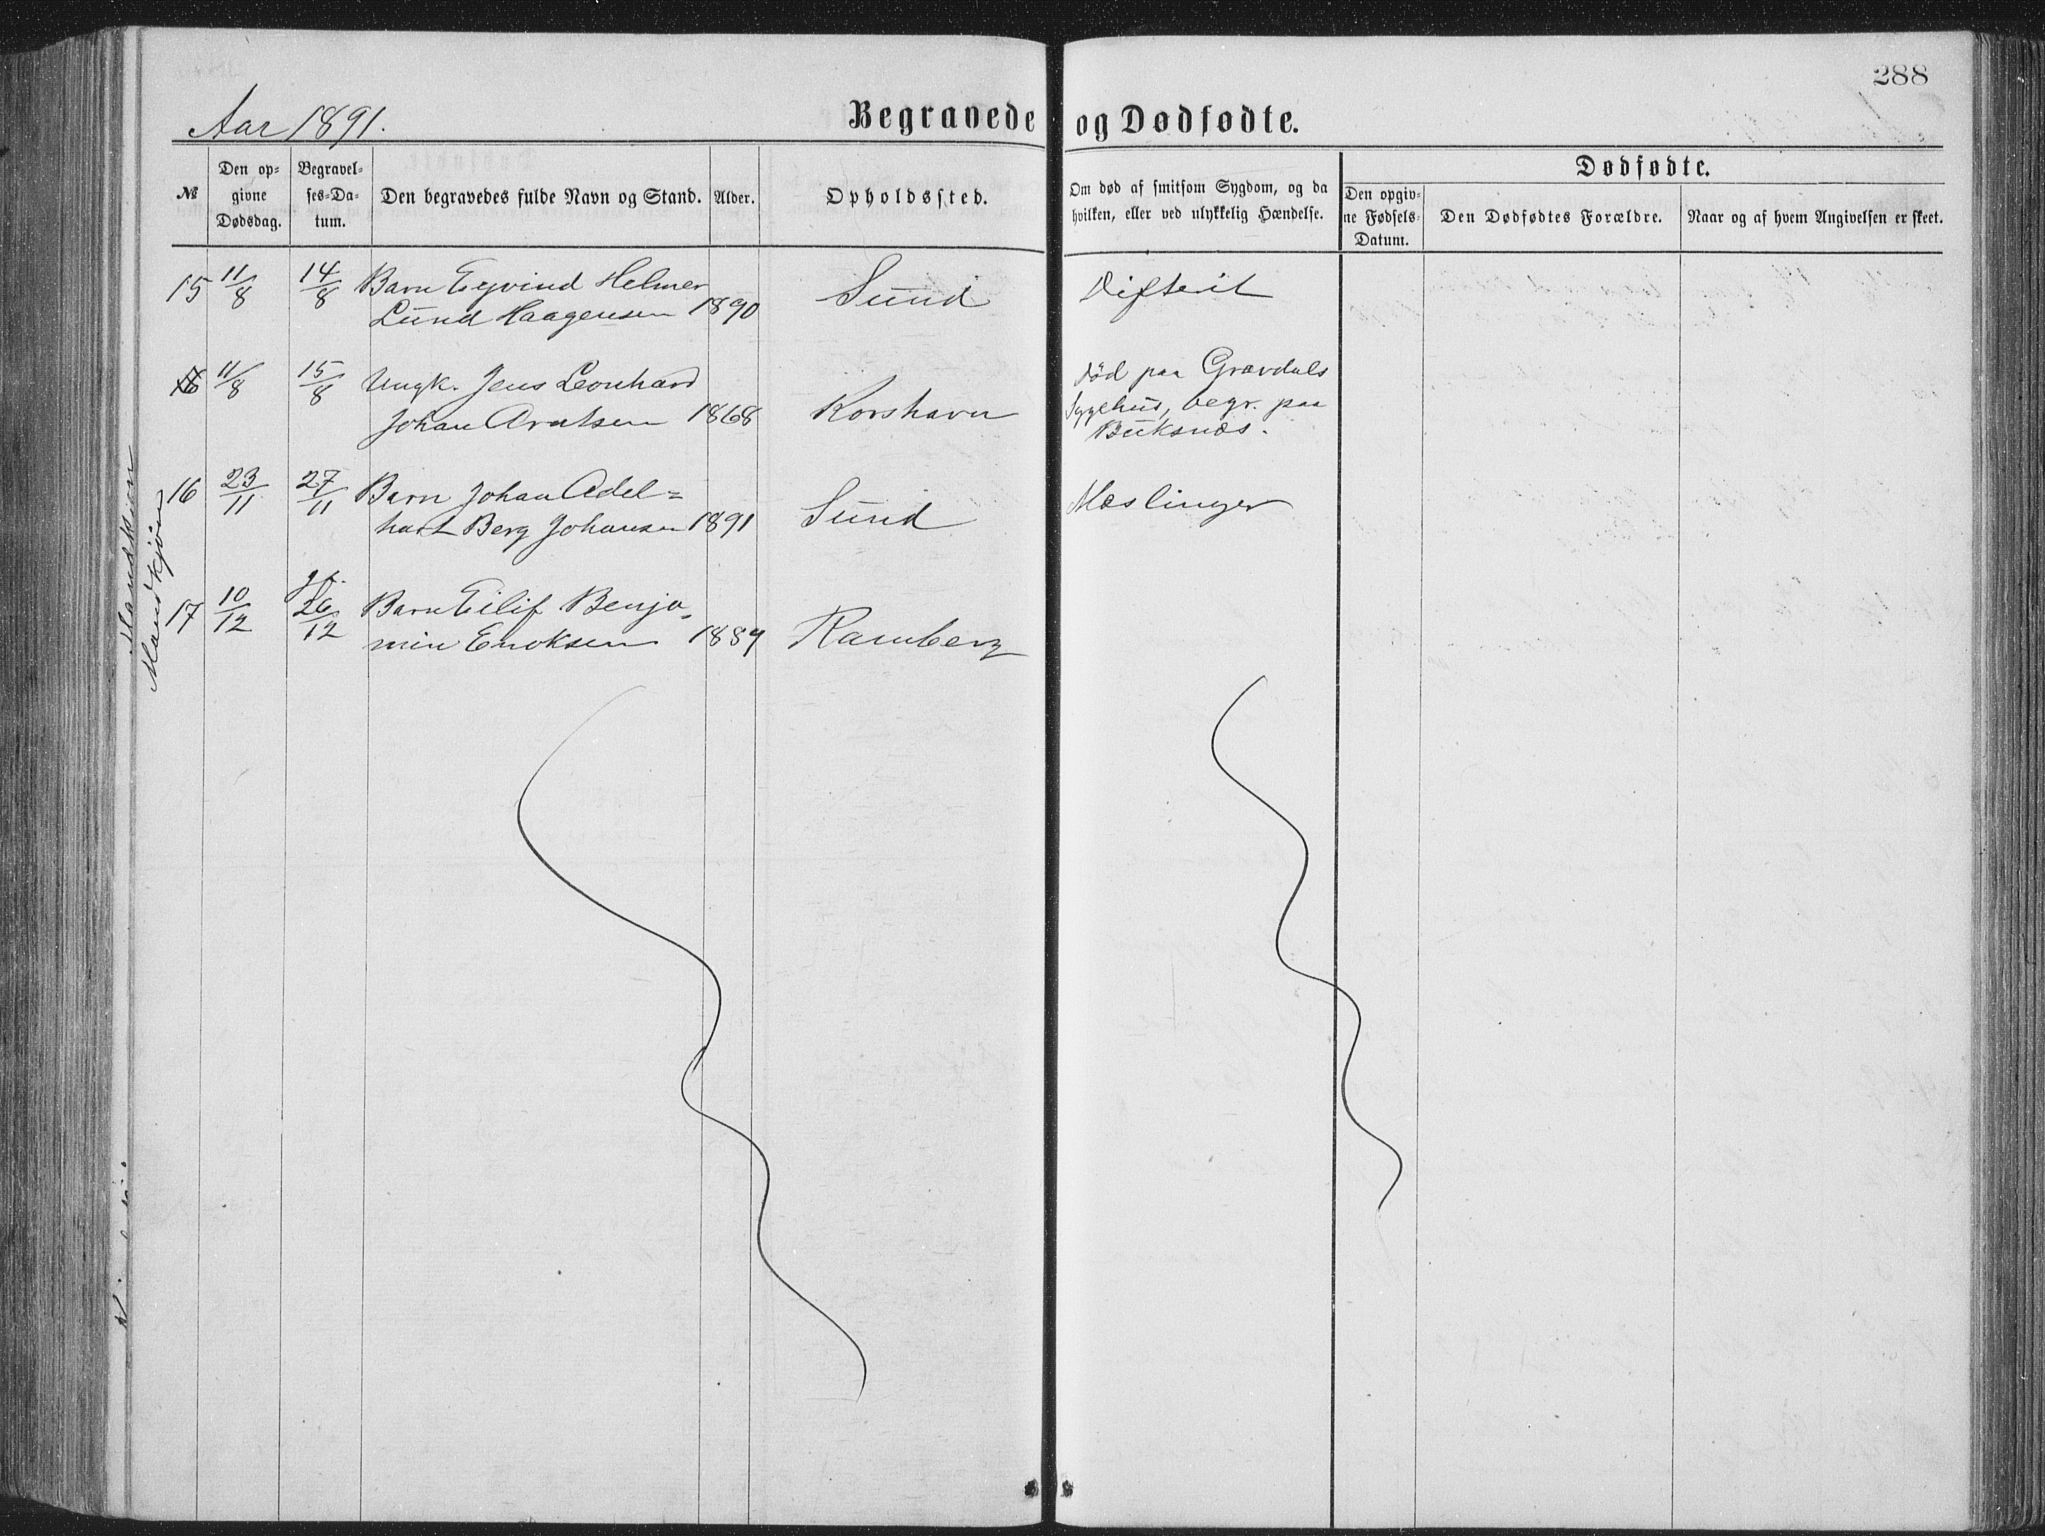 288
Aar 1891.
Begravede og Dødfødte.
№
Den op-
givne
Dødsdag.
Begravel-
ses-Da-
tum.
Den begravedes fulde Navn og Stand.
Alder.
Opholdssted.
Om død af smitsom Sygdom, og da
hvilken, eller ved ulykkelig Hændelse.
Dødfødte.
Den opgiv-
ne Fødsels-
Datum.
Den Dødfødtes Forældre.
Naar og af hvem Angivelsen er skeet.
15 11/8 14/8 Barn Ejvind Helmer
Lund Haagensen 1890 Sund Difterit
16 11/8 15/8 Ungk. Jens Leonhard
Johan Arntsen 1868 Korshavn
Død paa Gravdals
Sygehus, begr. paa
Buksnæs.
16 23/11 27/11 Barn Johan Adel=
hart Berg Johansen 1891 Sund Mæslinger
17 10/12 26/12 Barn Eilif Benja-
min Enoksen 1889 Ramberg
Mandkjön
Mandkjön